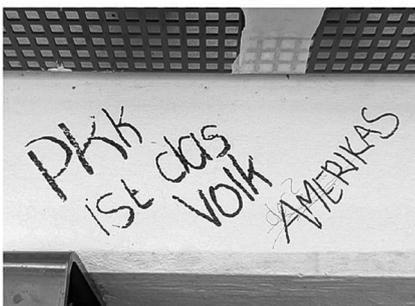 PKK
ist das
Volk
AMERIKAS